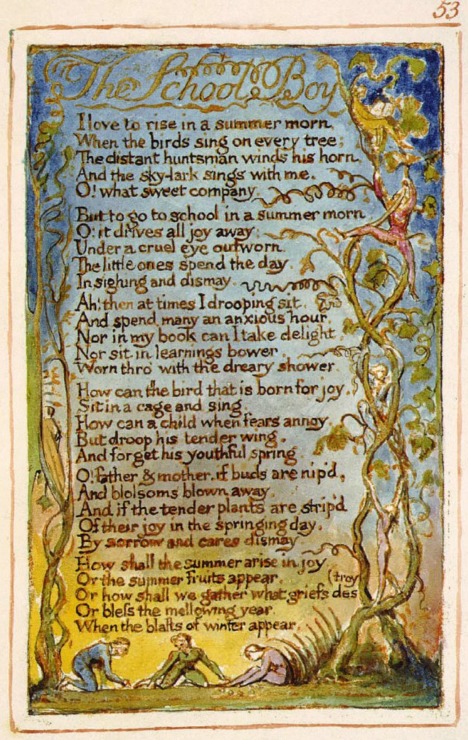 53
The School Boy
I love to rise in a summer morn,
When the birds sing on every tree;
The distant huntsman winds his horn,
And the sky-lark sings with me.
O! what sweet company.
But to go to school in a summer morn
O! it drives all joy away;
Under a cruel eye outworn.
The little ones spend the day
In sighing and dismay.
Ah! then at times I drooping sit,
And spend many an anxious hour,
Nor in my book can I take delight,
Nor sit in learnings bower,
Worn thro' with the dreary shower
How can the bird that is born for joy,
Sit in a cage and sing.
How can a child when fears annoy,
But droop his tender wing,
And forget his youthful spring.
O! father & mother, if buds are nip'd,
And bloſsoms blown away,
And if the tender plants are strip'd
Of their joy in the springing day,
By sorrow and cares dismay,
How shall the summer arise in joy
Or the summer fruits appear,
(troy
Or how shall we gather what griefs des
Or bleſs the mellowing year,
When the blasts of winter appear.